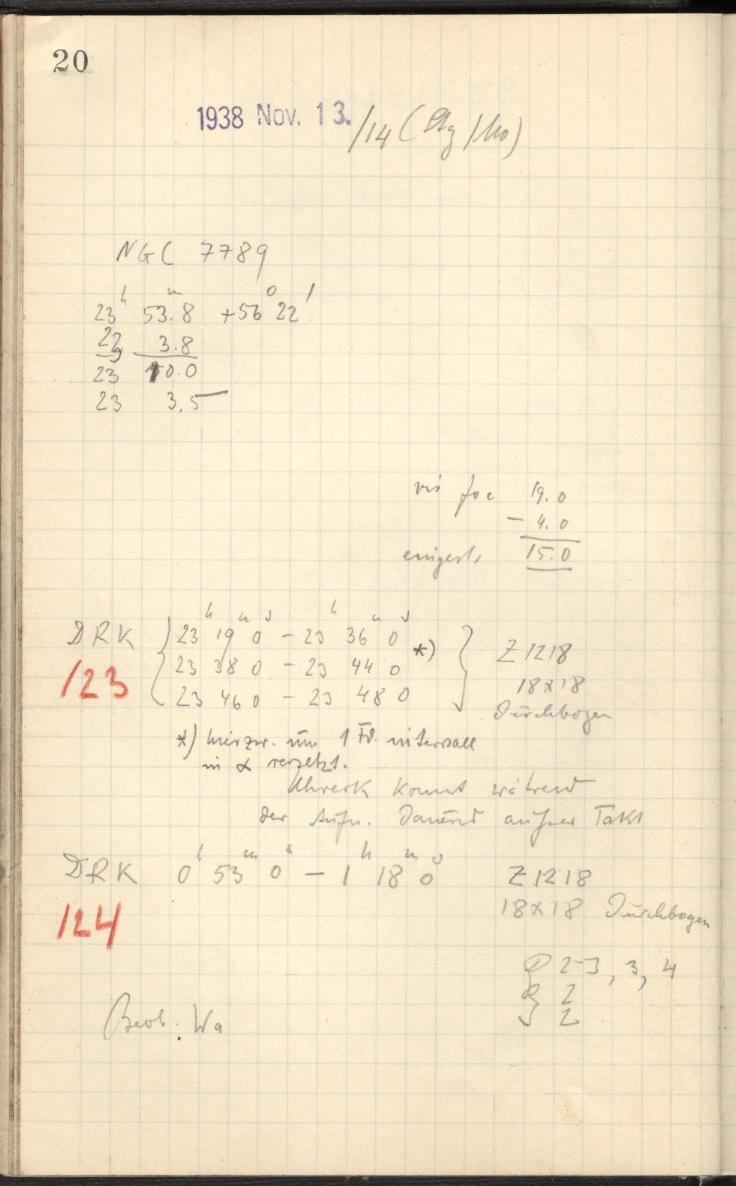 20
1938 Nov. 13. /14 (
NGC 7789
h m o '
23 53.8 +56 22
22 3.8
23 10.0
23 3.5
vis foc 19.0
- 4.0
eingest. 15.0
h m s h m s
DRK 23 19 0 - 23 36 0 *)
/23 23 38 0 - 23 44 0 Z 1218
23 46 0 - 23 48 0 18x18
Durchbogen
*) hierzw. um 1 Fd. intervall
in α versetzt.
Uhrwerk kommt während
der Aufn. dauernd außer Takt
h m s h m s
DRK 0 53 0 - 1 18 0 Z 1218
124 18x18 Durchbogen
D 2-3, 3, 4
R 2
S 2
Beob. Wa